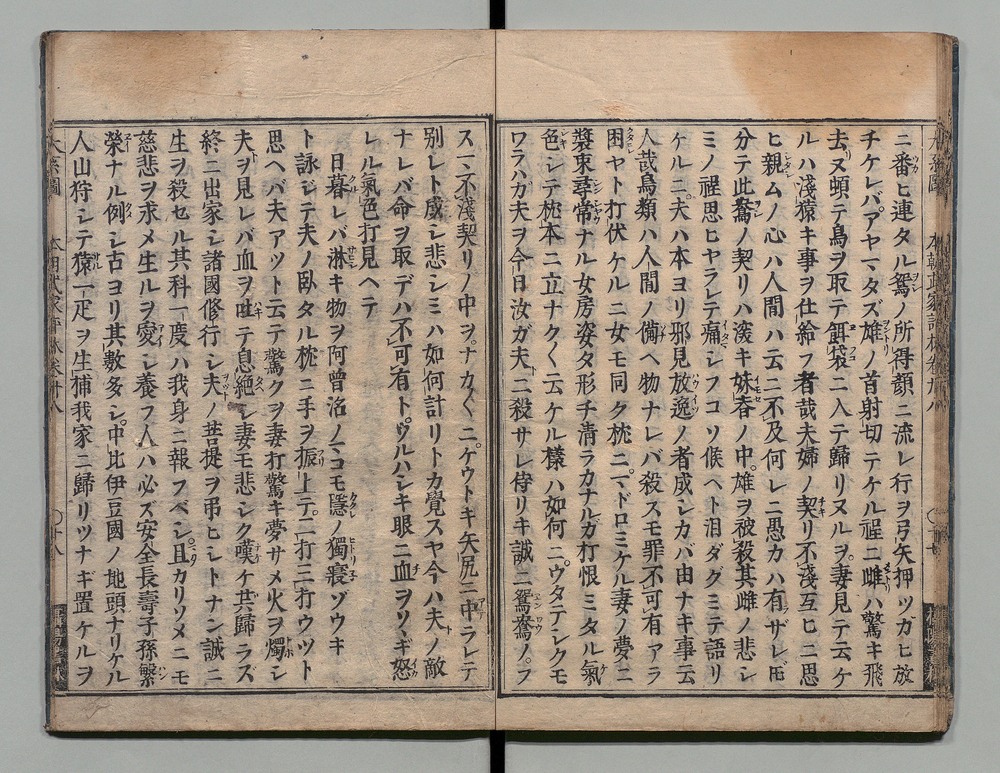 ニ番ヒ連タル鴛ノ所得顔ニ流レ行ヲ弓矢押ツガヒ放
チケレバアヤマタズ雄ノ首射切テケル程ニ雌ハ驚キ飛
去ヌ頓テ鳥ヲ取テ餌袋ニ入テ歸リヌルヲ。妻見テ云ケ
ルハ淺猿キ事ヲ仕給フ者哉夫婦ノ契リ不淺互ヒニ思
ヒ親ムノ心ハ人間ハ云ニ不及何レニ愚カハ有ザレ𪜈
分テ此鴛ノ契リハ深キ妹脊ノ中。雄ヲ被殺其雌ノ悲シ
ミノ程思ヒヤラレテ痛シフコソ候ヘト泪ダグミテ語リ
ケルニ。夫ハ本ヨリ邪見放逸ノ者成シカバ由ナキ事云
人哉鳥類ハ人間ノ備ヘ物ナレバ殺スモ罪不可有アラ
困ヤト打伏ケルニ女モ同ク枕ニ。マドロミケル妻ノ夢ニ
裝束尋常ナル女房姿タ形チ清ラカナルガ打恨ミタル氣
色シテ枕本ニ立ナク〱云ケル樣ハ如何ニ。ウタテシクモ
ワラハガ夫ヲ今日汝ガ夫ニ殺サレ侍リキ誠ニ鴛鴦ノ。フ
スマ不淺契リノ中ヲ。ナカ〱ニ。ケウトキ矢尻ニ中ラレテ
別レト成シ悲シミハ如何計リトカ覺スヤ今ハ夫ノ敵
ナレバ命ヲ取デハ不可有ト。ウルハシキ眼ニ血ヲソヽギ怒
レル氣色打見ヘテ
日暮レバ淋キ物ヲ阿曾沼ノマコモ隱ノ獨寢ゾウキ
ト詠ジテ夫ノ臥タル枕ニ手ヲ振上テ。二打三打ウツト
思ヘバ夫アツト云テ驚クヲ妻打驚キ夢サメ火ヲ燭シ
夫ヲ見レバ血ヲ吐テ息絶シ妻モ悲シク嘆ケ𪜈歸ラズ
終ニ出家シ諸國修行シ夫ノ菩提ヲ弔ヒシトナン誠ニ
生ヲ殺セル其科一度ハ我身ニ報フベシ。且カリソメニモ
慈悲ヲ求メ生ルヲ愛シ養フ人ハ必ズ安全長壽子孫繁
榮ナル例シ古ヨリ其數多シ。中比伊豆國ノ地頭ナリケル
人山狩シテ猿一疋ヲ生捕我家ニ歸リツナギ置ケルヲ
本朝武家評林卷卅八
十八